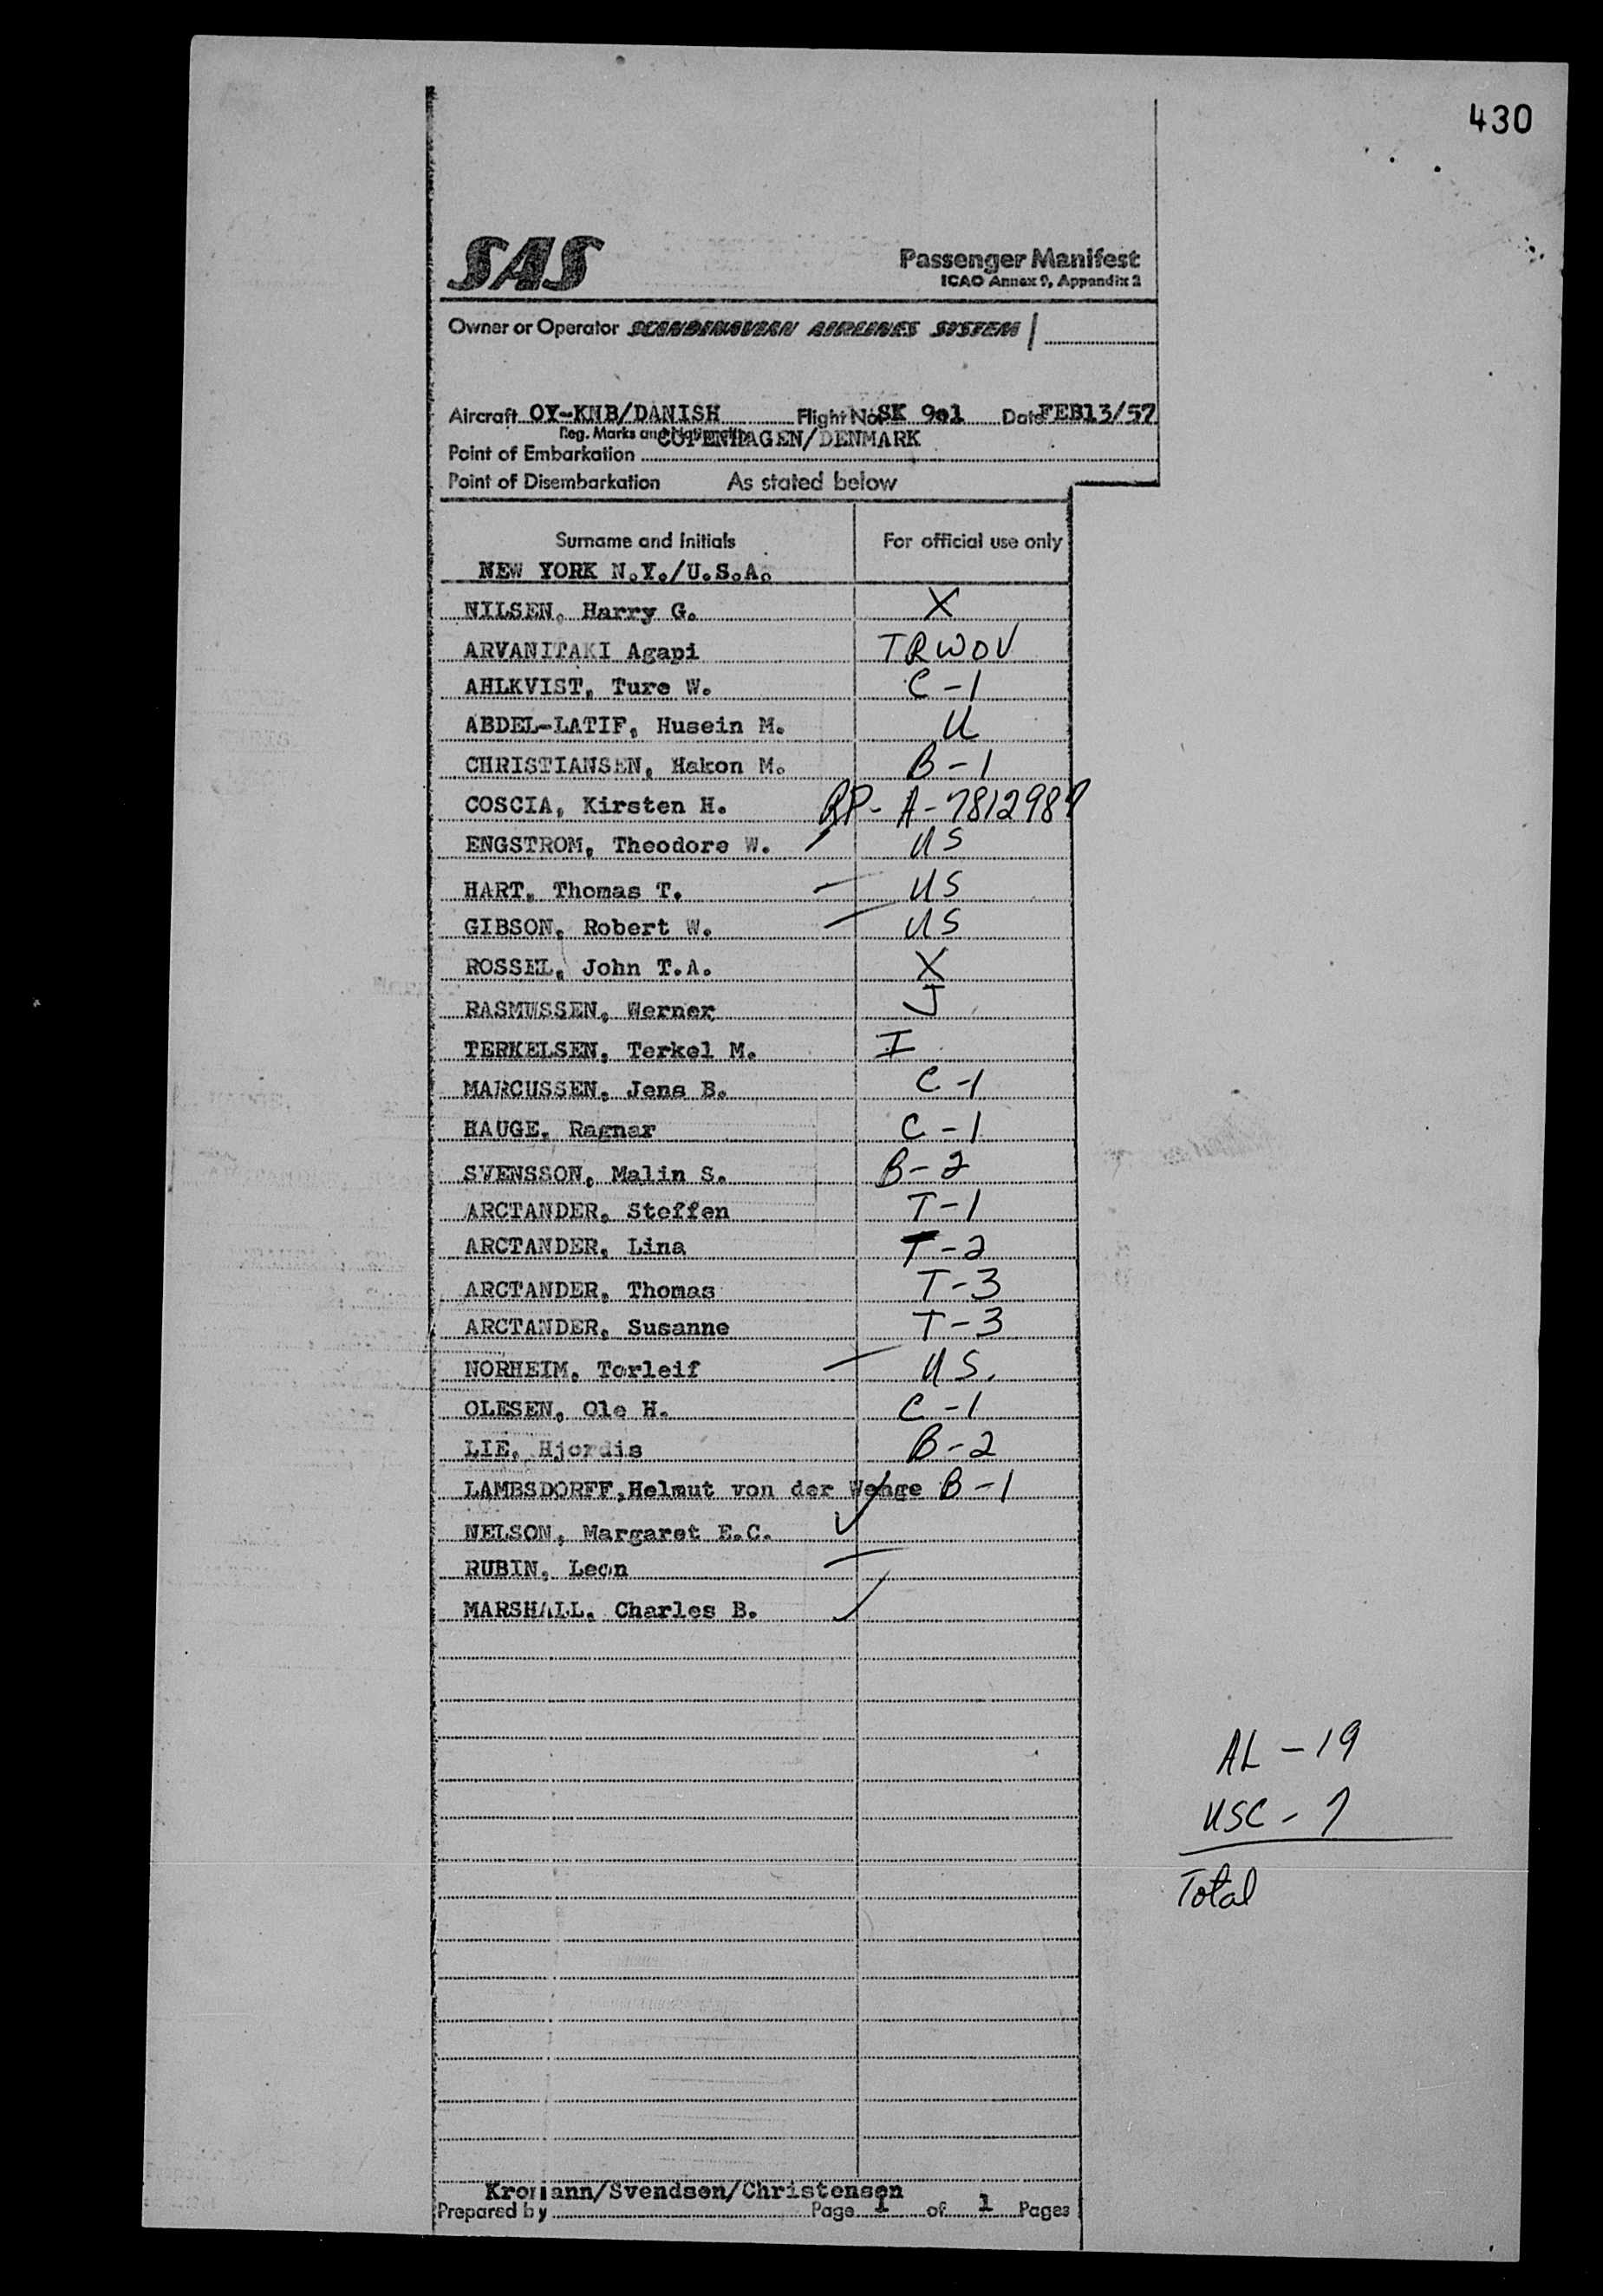 430
SAS
Passenger Manifest
ICAO Annex 9, Appendix 2
Owner or Operator SCANDINAVIAN AIRLINES SYSTEM
Aircraft OY-KMB/DANISH Flight No. SK 901 Date FEB13/57
Reg. Marks and
COPENHAGEN/DENMARK
Point of Embarkation
Point of Disembarkation As stated below
Surname and Initials For official use only
NEW YORK N.Y./U.S.A.
NILSEN, Harry G. X
ARVANITAKI Agapi TRWOV
AHLKVIST, Ture W. C-1
ABDEL-LATIF, Husein M. U
CHRISTIANSEN, Hakon M. B-1
COSCIA, Kirsten H. RP-A-7812989
ENGSTROM, Theodore W. US
HART, Thomas T. US
GIBSON, Robert W. US
ROSSEL, John T.A. X
RASMUSSEN, Werner J
TERKELSEN, Terkel M. I
MARCUSSEN, Jens B. C-1
HAUGE, Ragnar C-1
SVENSSON, Malin S. B-2
ARCTANDER, Steffen T-1
ARCTANDER, Lina T-2
ARCTANDER, Thomas T-3
ARCTANDER, Susanne T-3
NORHEIM, Torleif US.
OLESEN, Ole H. C-1
LIE, Hjordis B-2
LAMBSDORFF, Helmut von der Wenge B-1
NELSON, Margaret E.C.
RUBIN, Leon
MARSHALL, Charles B.
AL - 19
USC - 7
Total
Kromann/Svendsen/Christensen
Prepared by Page 1 of 1 Pages